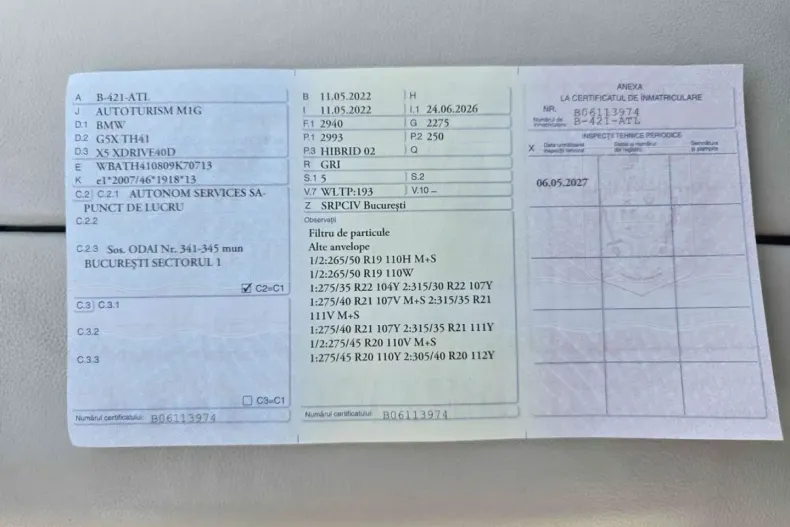 A B-421-ATL
J AUTOTURISM M1G
D.1 BMW
D.2 G5X TH41
D.3 X5 XDRIVE40D
E WBATH410809K70713
K e1*2007/46*1918*13
C.2 C.2.1 AUTONOM SERVICES SA-
PUNCT DE LUCRU
C.2.2
C.2.3 Sos. ODAI Nr. 341-345 mun
BUCUREŞTI SECTORUL 1
C2=C1
C.3 C.3.1
C.3.2
C.3.3
C3=C1
Numărul certificatului: B06113974
B 11.05.2022 H
I 11.05.2022 I.1 24.06.2026
F.1 2940 G 2275
P.1 2993 P.2 250
P.3 HIBRID 02 Q
R GRI
S.1 5 S.2
V.7 WLTP:193 V.10 –
Z SRPCIV Bucureşti
Observaţii
Filtru de particule
Alte anvelope
1/2:265/50 R19 110H M+S
1/2:265/50 R19 110W
1:275/35 R22 104Y 2:315/30 R22 107Y
1:275/40 R21 107V M+S 2:315/35 R21
111V M+S
1:275/40 R21 107Y 2:315/35 R21 111Y
1/2:275/45 R20 110V M+S
1:275/45 R20 110Y 2:305/40 R20 112Y
Numărul certificatului: B06113974
ANEXA
LA CERTIFICATUL DE ÎNMATRICULARE
NR. B06113974
Numărul de înmatriculare B-421-ATL
INSPECŢII TEHNICE PERIODICE
X Data următoarei inspecţii tehnice
Seria şi numărul din registru
Semnătura şi ştampila
06.05.2027